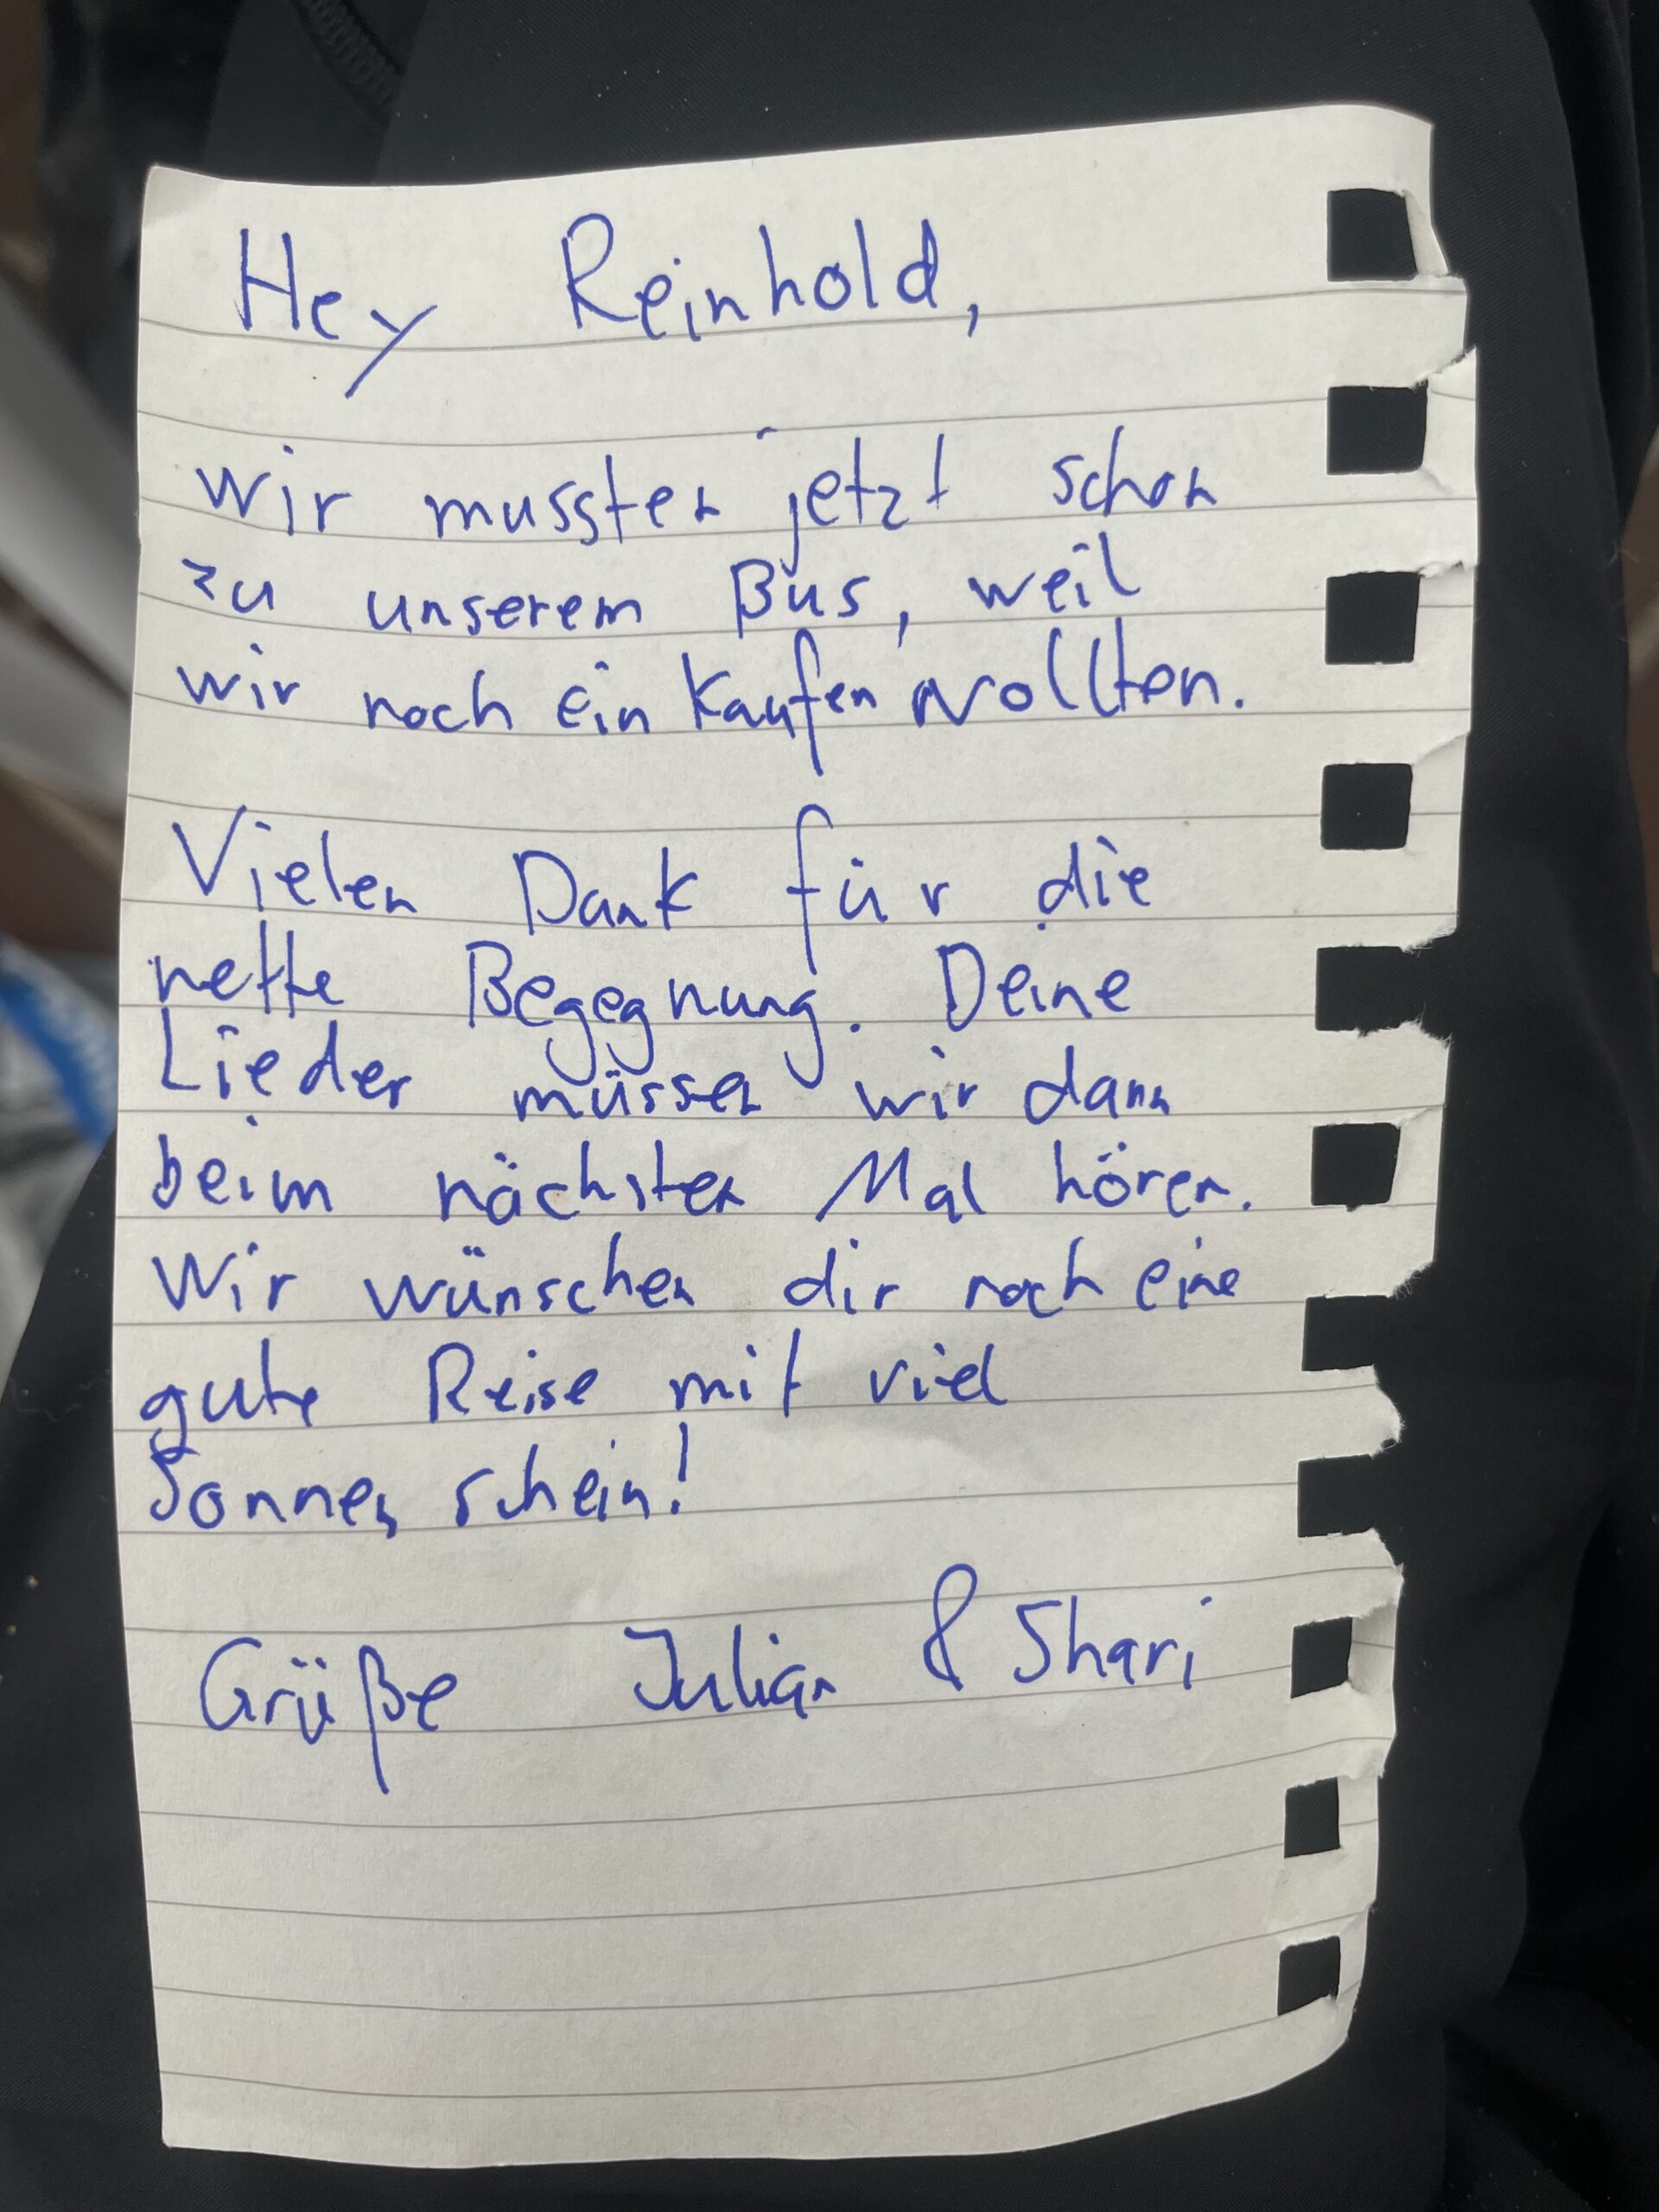 Hey Reinhold,
wir mussten jetzt schon
zu unserem Bus, weil
wir noch ein kaufen wollten.
Vielen Dank für die
nette Begegnung. Deine
Lieder müssen wir dann
beim nächsten Mal hören.
Wir wünschen dir noch eine
gute Reise mit viel
Sonnenschein!
Grüße Julian & Shari